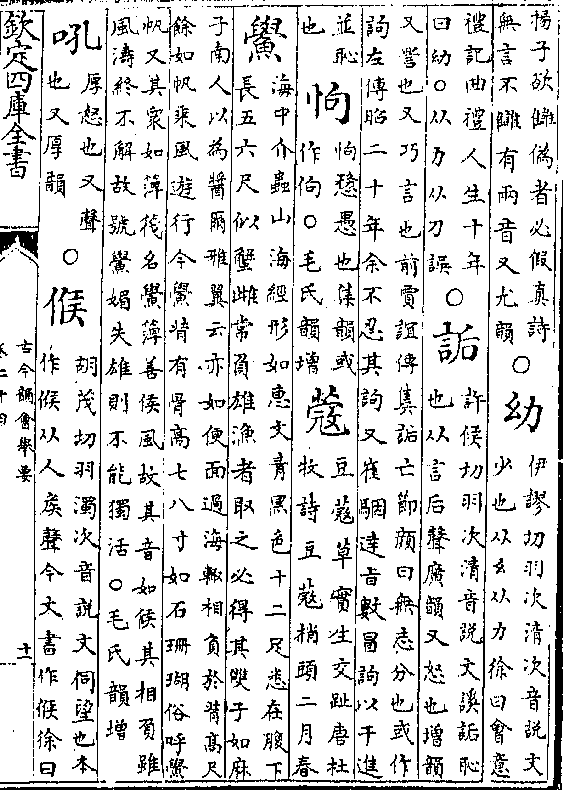 楊子欲讎偽者必假真詩
無言不讎有兩音又尤韻
○幼
伊謬切羽次清次音說文
少也从幺从力徐曰會意
禮記曲禮人生十年
曰幼○从力从刀誤
○詬
許候切羽次清音說文謑詬恥
也从言后聲廣韻又怒也增韻
又詈也又巧言也前賈誼傳奊詬亡節顔曰無志分也或作
訽左傳昭二十年余不忍其訽又崔駰達旨數冒訽以干進
並恥
也
怐
怐愗愚也集韻或
作佝○毛氏韻增
蔻
豆蔻草實生交趾唐杜
牧詩豆蔻梢頭二月春
鱟
海中介蟲山海經形如惠文青黑色十二足悉在腹下
長五六尺似蟹雌常負雄漁者取之必得其雙子如麻
子南人以為醬爾雅翼云亦如便面過海輒相負於背高尺
餘如帆乘風遊行今鱟背有骨高七八寸如石珊瑚俗呼鱟
帆又其衆如簿筏名鱟簿善候風故其音如候其相負雖
風濤終不解故號鱟媚失雄則不能獨活○毛氏韻增
吼
厚怒也又聲
也又厚韻
○候
胡茂切羽濁次音說文伺望也本
作候从人矦聲今文書作候徐曰
欽定四庫全書
古今韻會舉要
卷二十四
十一